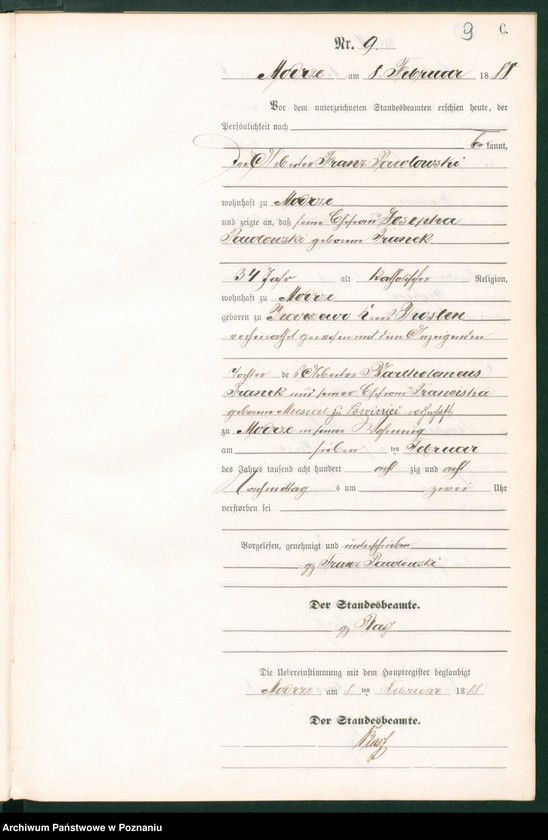 9 C.
Nr. 9.
Modrze am 8. Februar 1888
Vor dem unterzeichneten Standesbeamten erschien heute, der
Persönlichkeit nach
bekannt,
der Arbeiter Franz Pawlowski
wohnhaft zu Modrze
und zeigte an, daß seine Ehefrau Josepha
Pawlowski geborene Franek
34 Jahr alt katholischer Religion,
wohnhaft zu Modrze
geboren zu
verheirathet gewesen mit dem Anzeigenden
Tochter des Arbeiter
Franek und seiner Ehefrau
geborene zu wohnhaft
zu Modrze in seiner Wohnung
am sieben ten Februar
des Jahres tausend acht hundert acht zig und acht
Nachmittag s um zwei Uhr
verstorben sei
Vorgelesen, genehmigt und unterschrieben
gz Franz Pawlowski
Der Standesbeamte.
gz
Die Uebereinstimmung mit dem Hauptregister beglaubigt
Modrze am 8 ten Februar 1888
Der Standesbeamte.
Archiwum Państwowe w Poznaniu